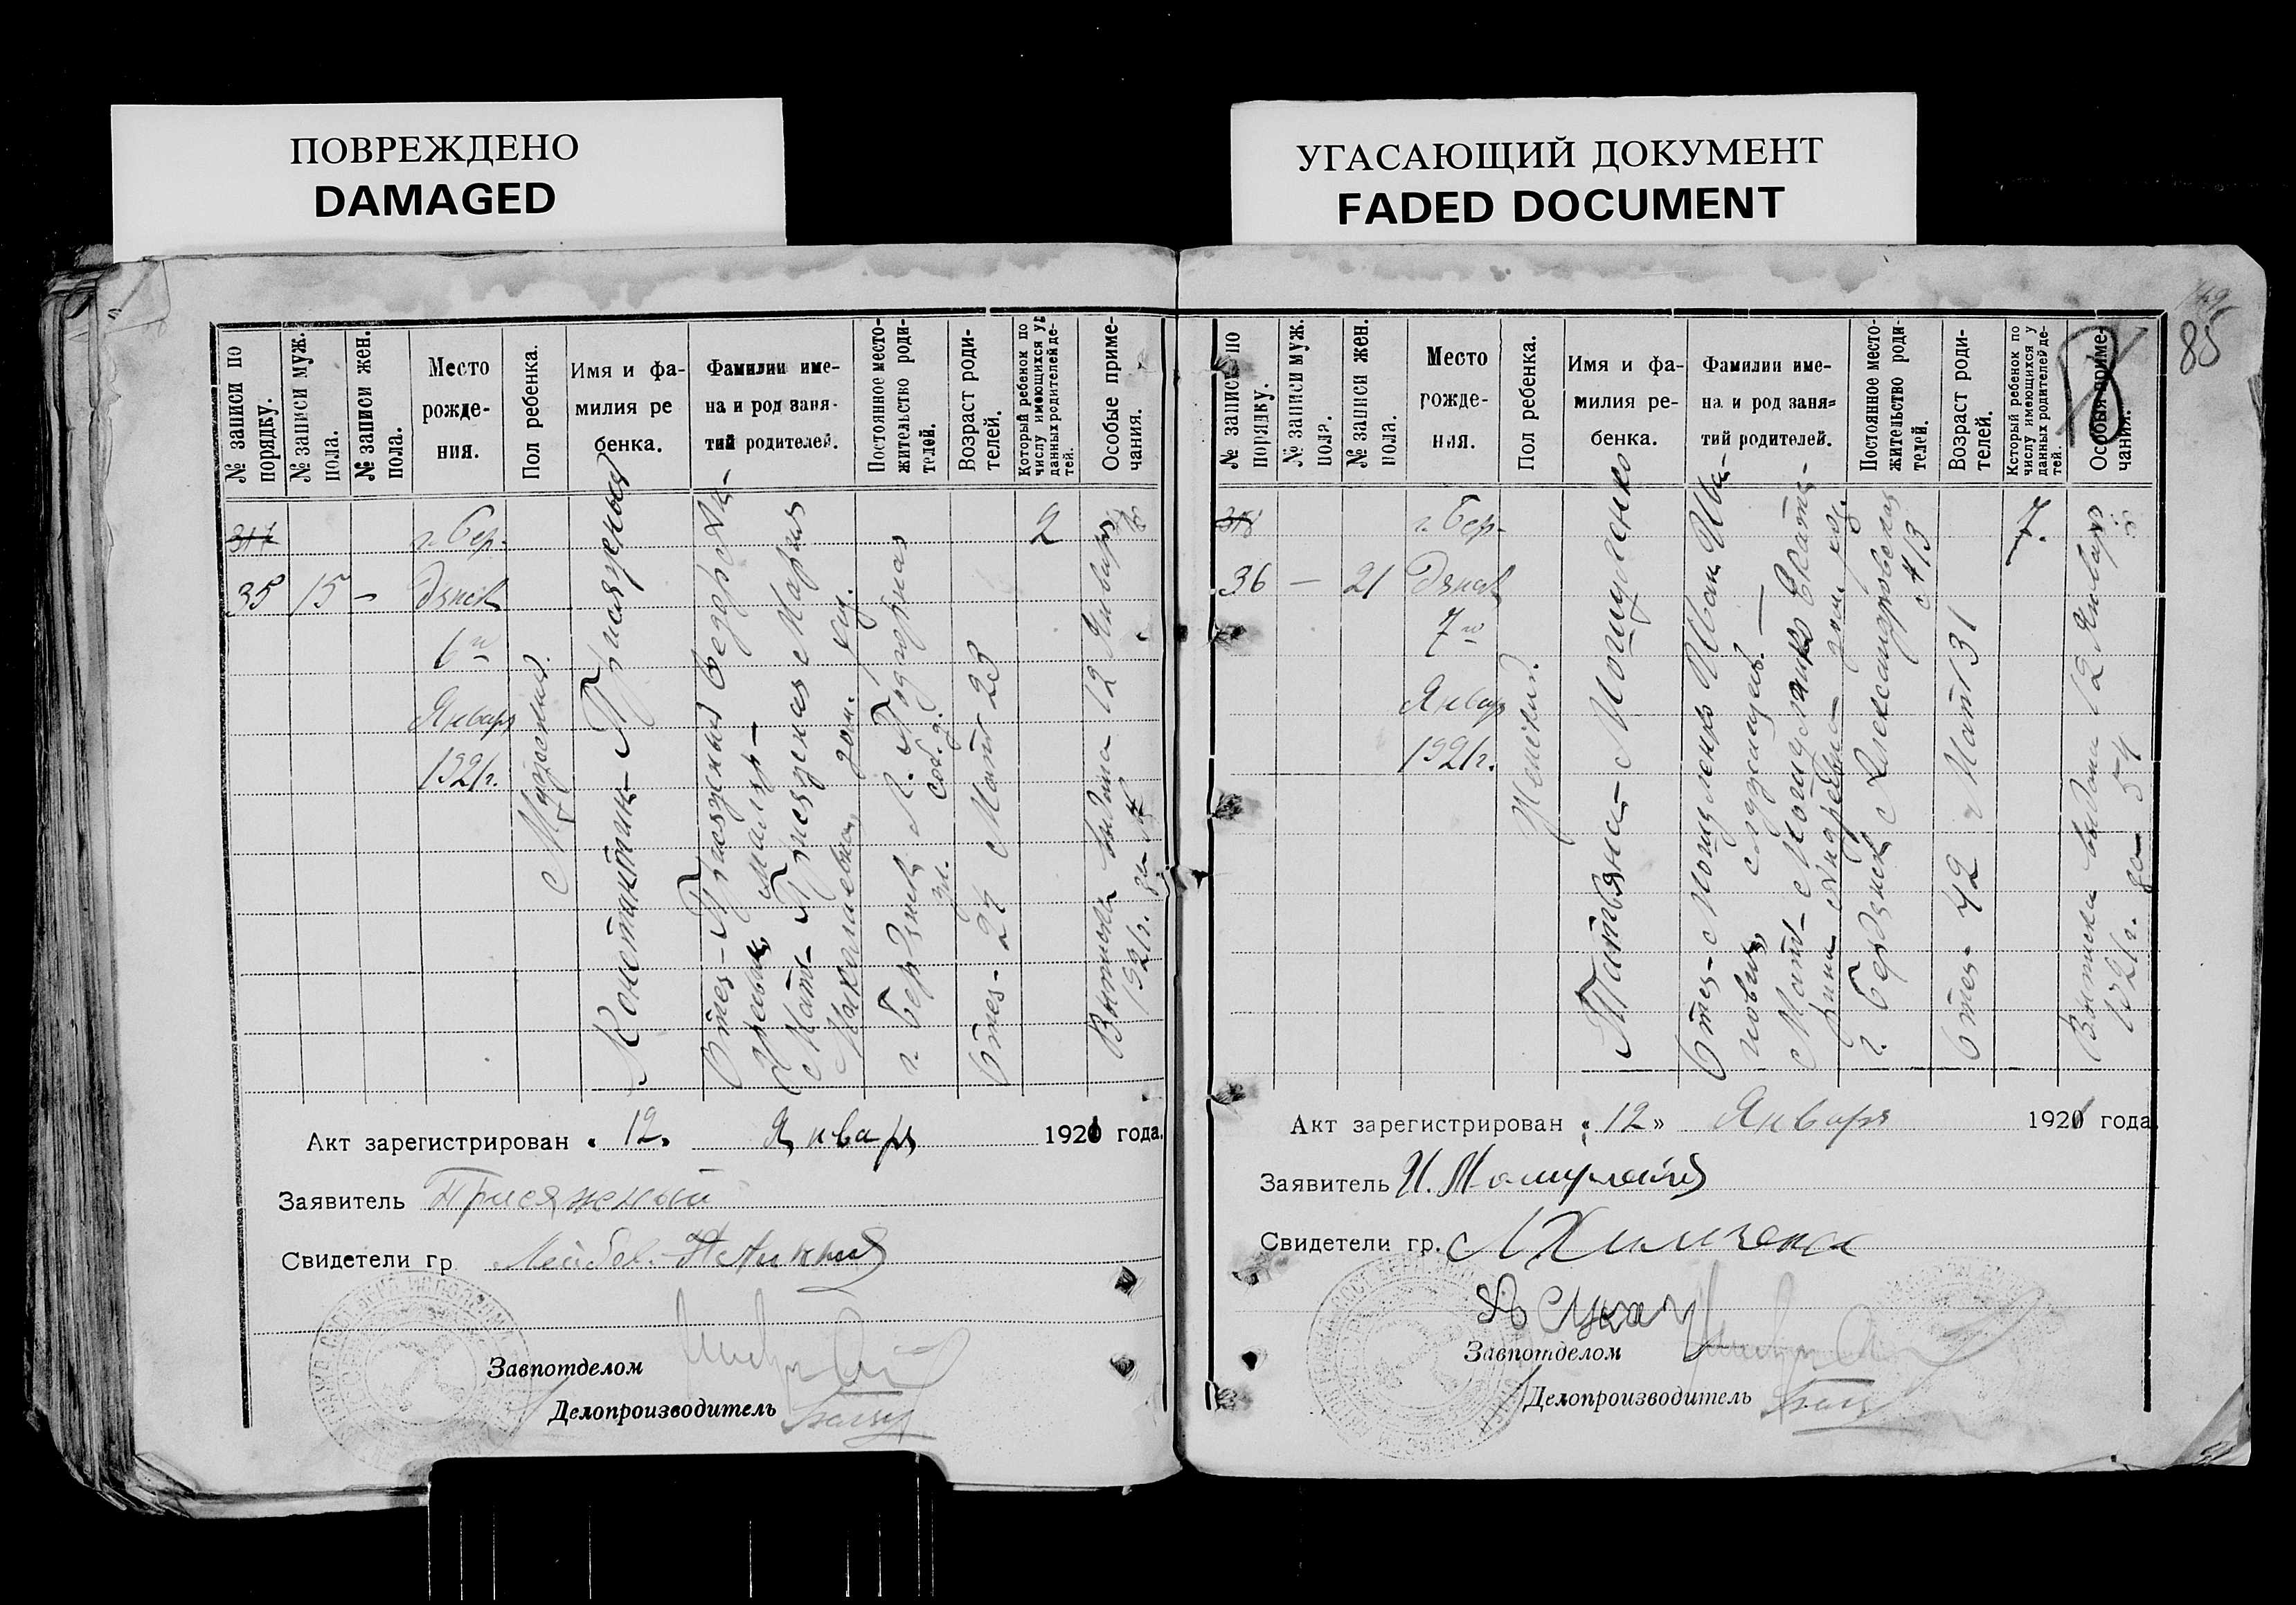 ПОВРЕЖДЕНО
DAMAGED
УГАСАЮЩИЙ ДОКУМЕНТ
FADED DOCUMENT
№ записи по порядку.
№ записи муж. пола.
№ записи жен. пола.
Место рожде-
ния.
Пол ребенка.
Имя и фа-
милия ре
бенка.
Фамилии име-
на и род заня-
тий родителей.
Постоянное место-
жительство роди-
телей.
Возраст роди-
телей.
Который ребенок по
числу имеющихся у
данных родителей де-
тей.
Особые приме-
чания.
317
35
15
-
г. Бер-
дянск
6го
Января
1921г.
Мужеский.
Константин Присяжный
Отец - Присяжный Федор
маляр -
Мать - Присяжная Мария
Николаевна дом. хоз.
г. Бердянск
соб. д.
Отец - 27 Мать 23
2
Выписка выдана 12 Января
1921г. за №
Акт зарегистрирован 12 Января 1921 года.
Заявитель Присяжный
Свидетели гр
Завпотделом
Делопроизводитель
85
№ записи по
порядку.
№ записи муж.
пола.
№ записи жен.
пола.
Место
рожде-
ния.
Пол ребенка.
Имя и фа-
милия ре-
бенка.
Фамилии име-
на и род заня-
тий родителей.
Постоянное место-
жительство роди-
телей.
Возраст роди-
телей.
Который ребенок по
числу имеющихся у
данных родителей де-
тей.
Особыя приме-
чания.
318
36
—
21
г. Бер-
дянск
7го
Января
1921г.
Женский.
Татьяна Мошуленко
Отец - Мошуленко Иван Ива-
нович служащий. —
Мать - Мошуленко Екате-
рина Андреевна дом. хоз.
г. Бердянск Александровская
№ 13
Отец - 42 Мать 31
7.
Выписка выдана 12 Января
1921г. за 54
Акт зарегистрирован „12" Января 1921 года
Заявитель И. Мошуленко
Свидетели гр.
Завпотделом
Делопроизводитель